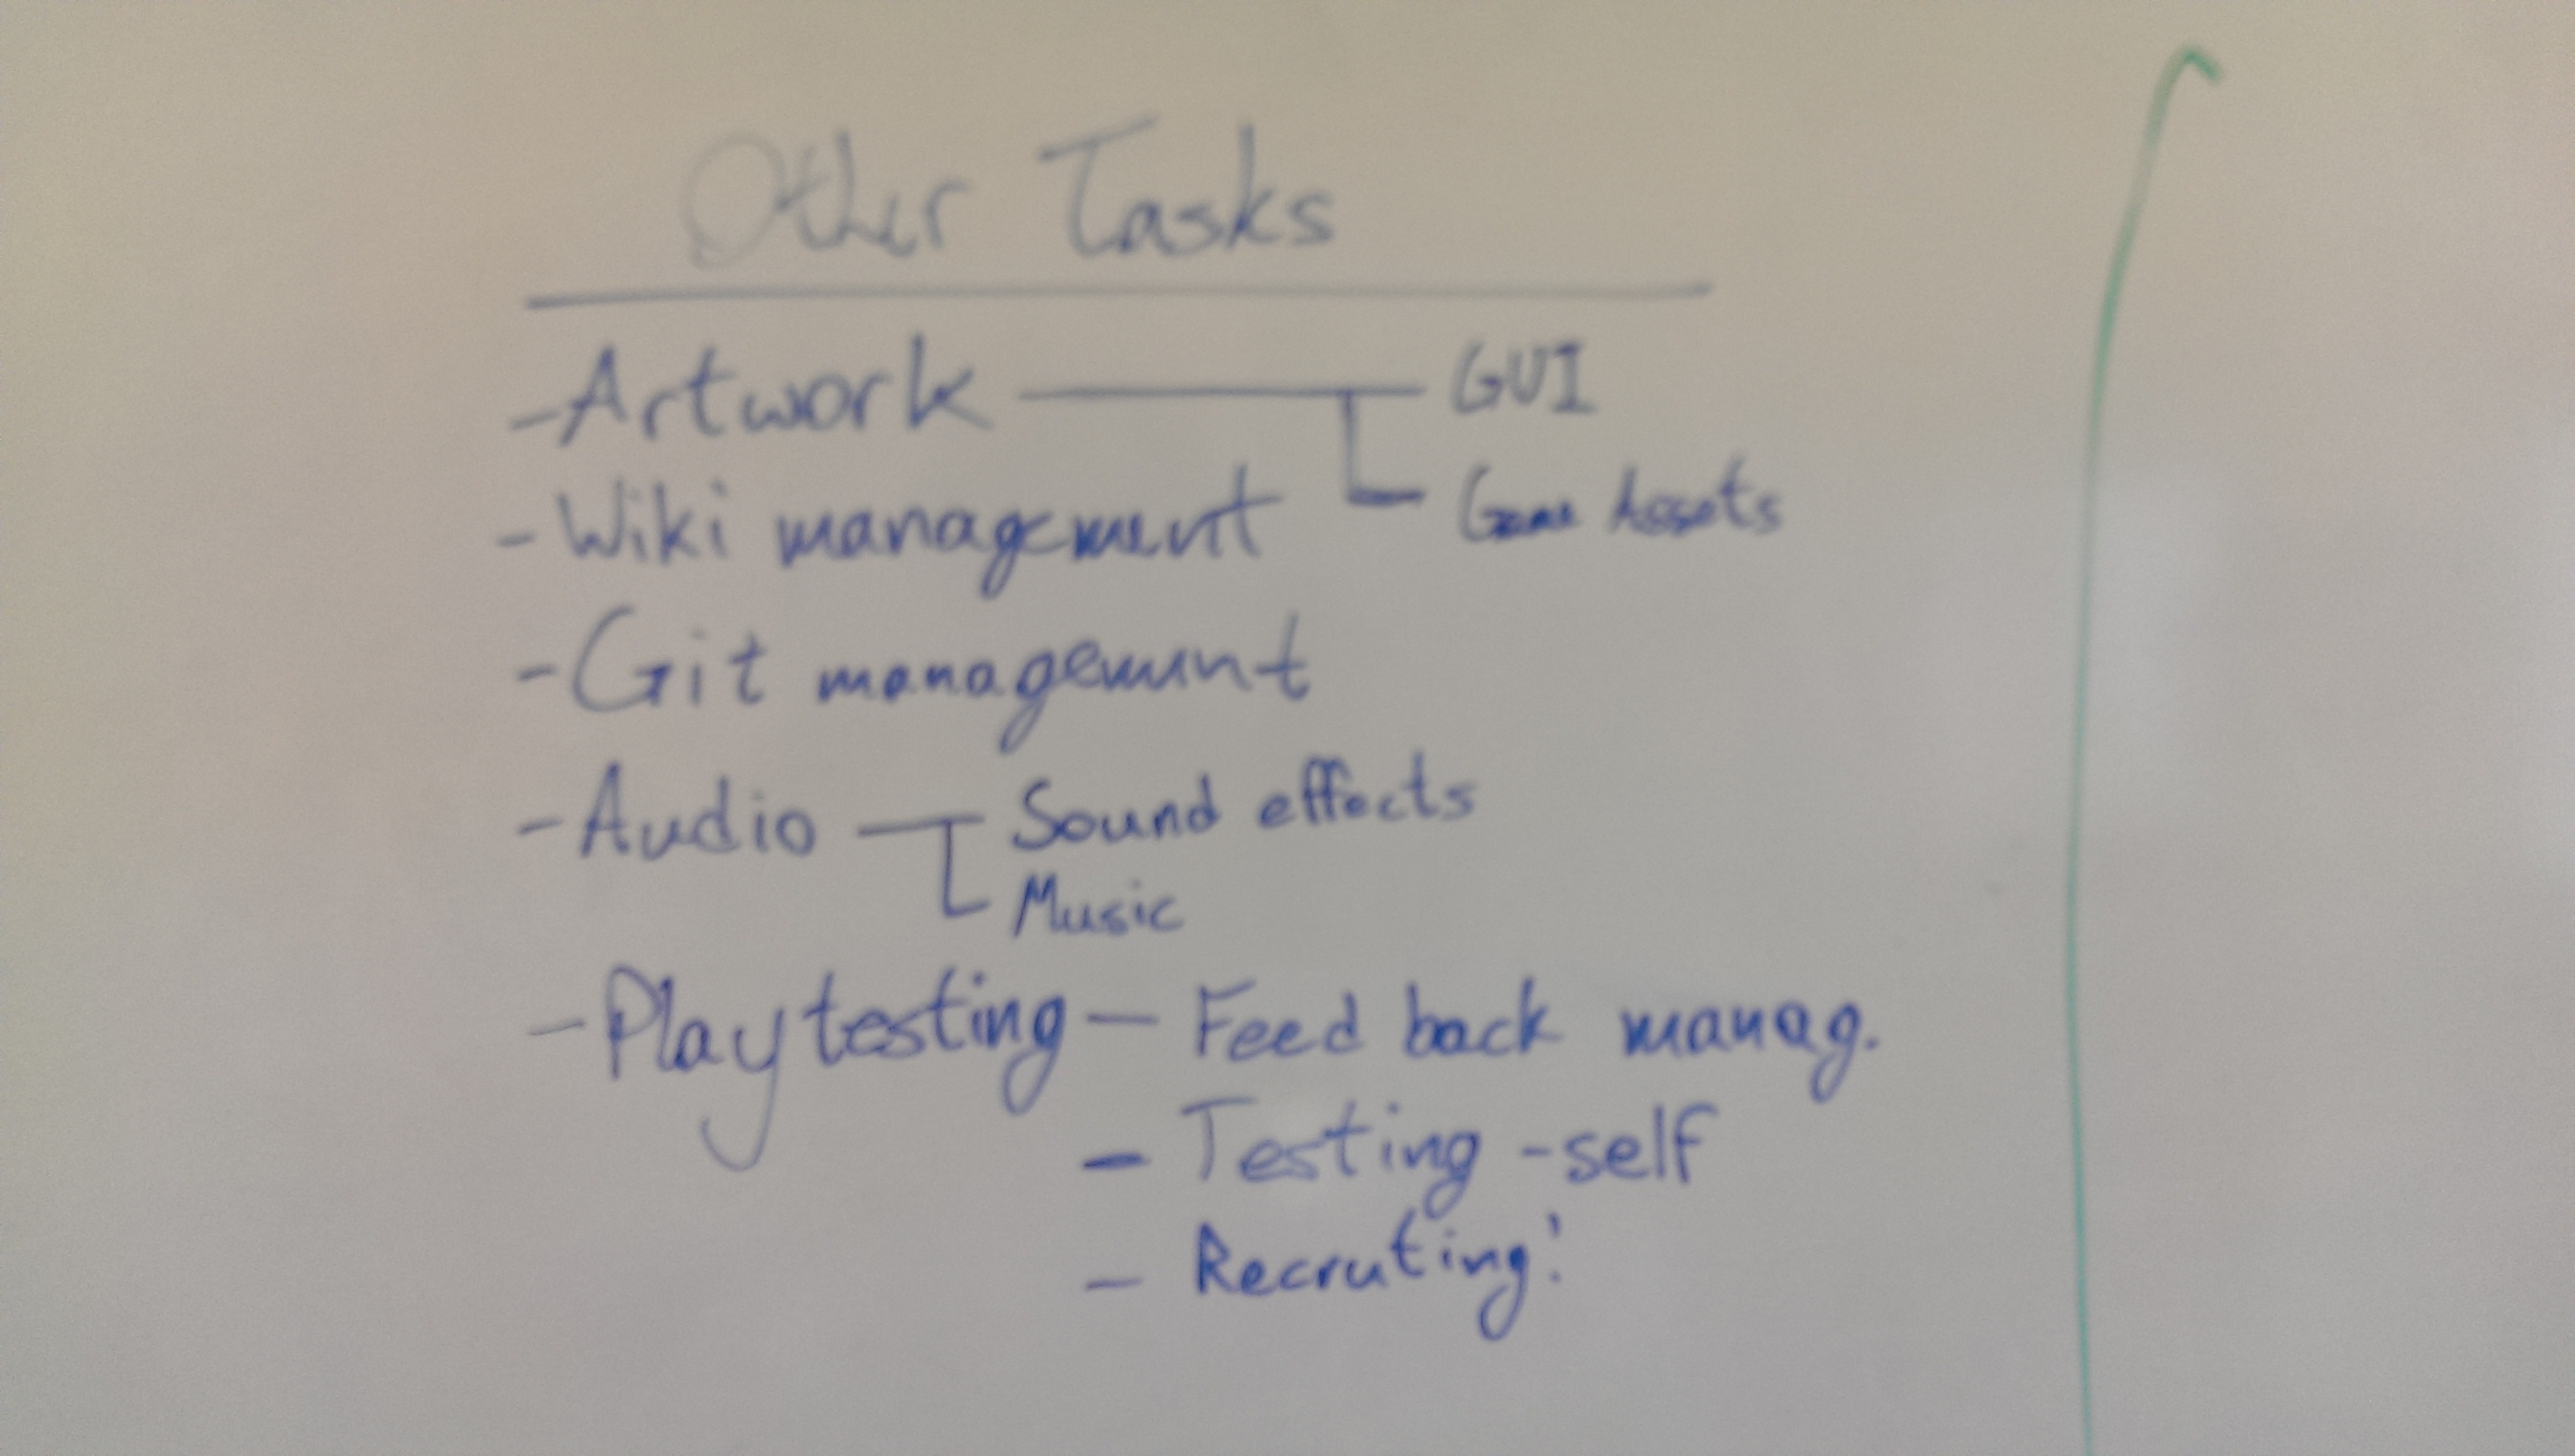 Other Tasks
- Artwork - GUI
- Game Assets
- Wiki management
- Git management
- Audio - Sound effects
Music
- Playtesting - Feed back manag.
- Testing - self
- Recruting!